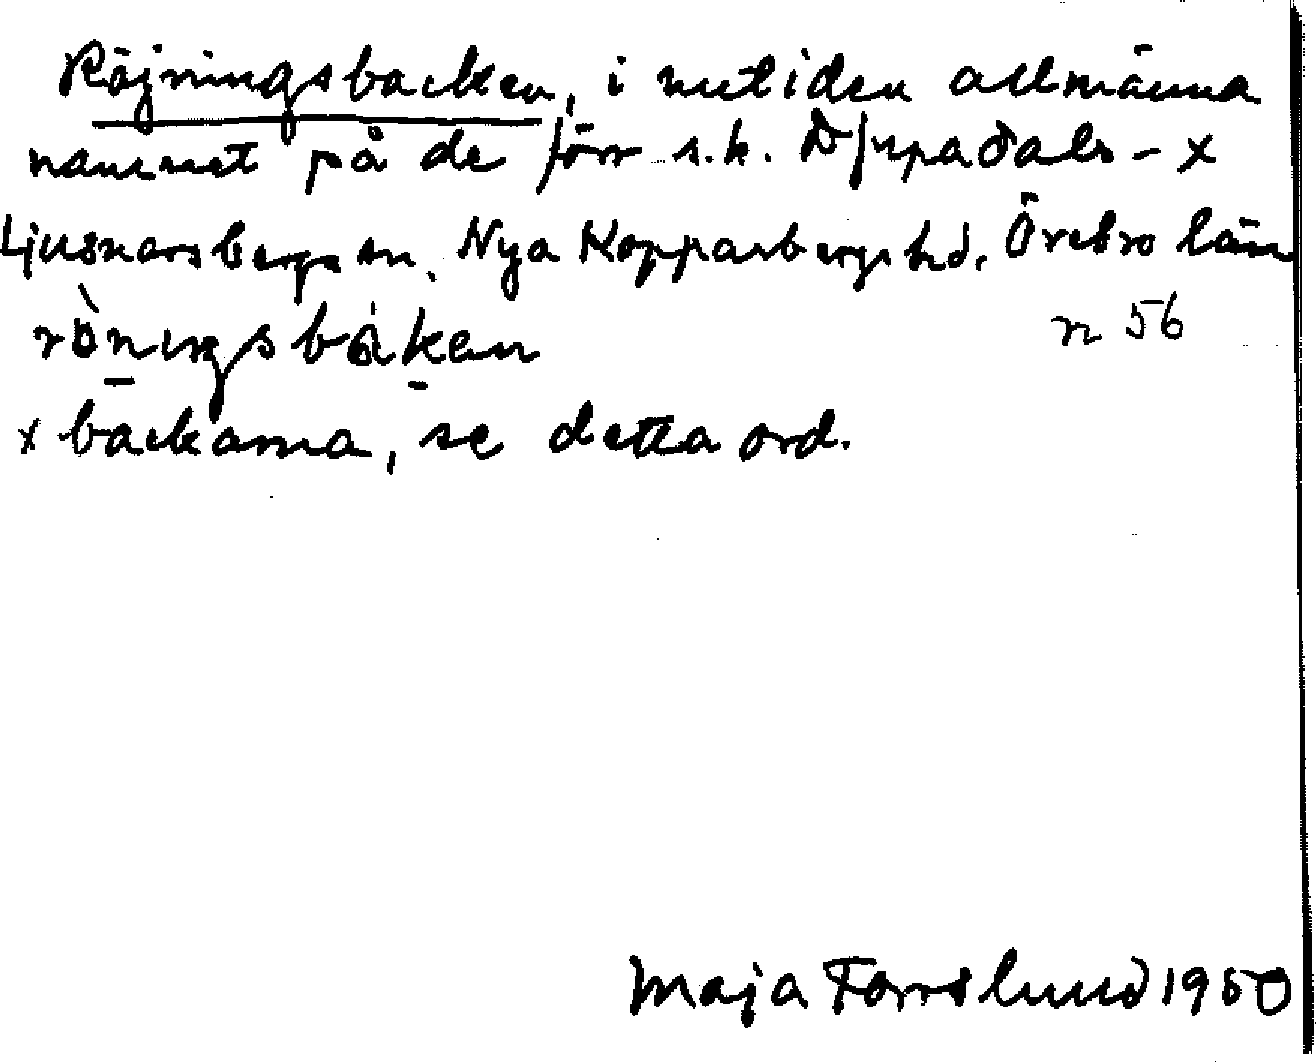 Röjningsbacken, i nutiden allmänna
namnet på de förr s.k. Djupadals- x
Ljusnarsbergs sn. Nya Kopparbergs hd. Örebro län
rö̀nıŋsbáken
n 56
x backarna, se detta ord.
Maja Forsslund 1950